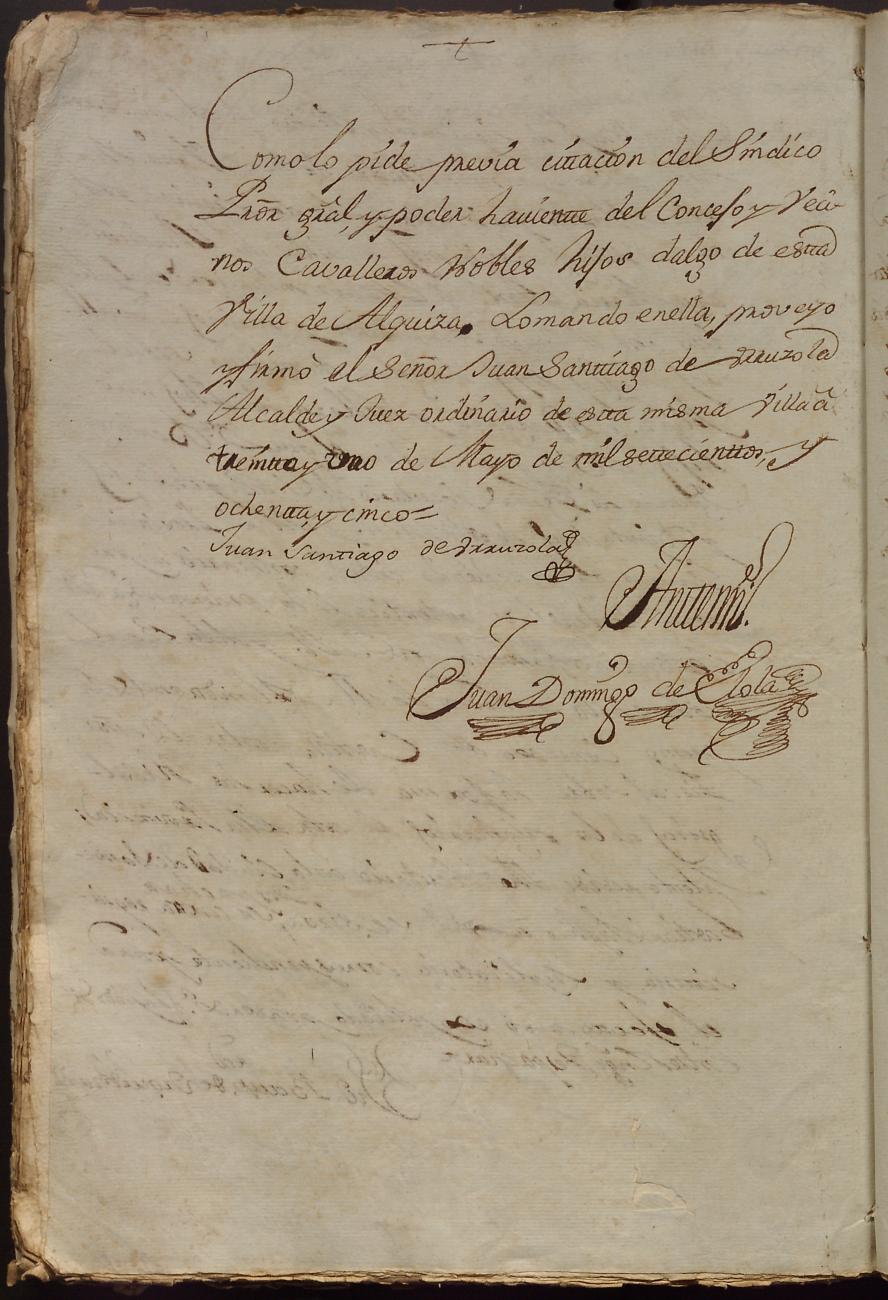 Como lo pide previa cittacion del Sindico
Prõr grãl, y poder haviente del Concejo y Veci-
nos Cavalleros Nobles hijos dalgo de estta
Villa de Alquiza, Lo mando en ella, proveyo
y firmò el Señor Juan Santtiago de Yrruzola
Alcalde y Juez ordinario de estta misma Villa â
treintta y uno de Mayo de mil settecienttos, y
ochentta, y cinco=
Juan Santiago de Yrruzola
Antemi.
Juan Domingo de Elola